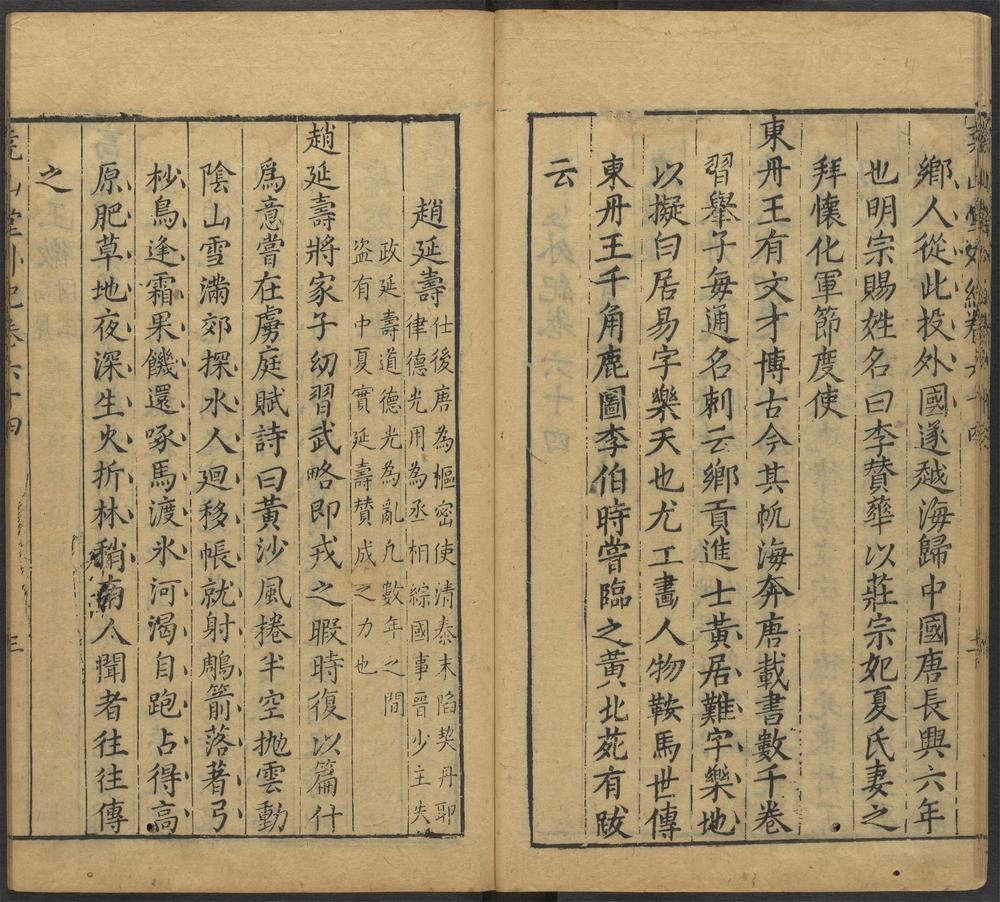 鄉人從此投外國遂越海歸中國唐長興六年
也明宗賜姓名曰李賛華以莊宗妃夏氏妻之
拜懷化軍節度使
東丹王有文才博古今其帆海奔唐載書數千卷
習舉子每通名刺云鄉貢進士黃居難字樂地
以擬白居易字樂天也尤工畫人物鞍馬世傳
東丹王千角鹿圖李伯時嘗臨之黃北苑有跋
云
趙延壽
仕後唐為樞密使清泰末陷契丹耶
律德光用為丞相綜國事晉少主失
政延壽道德光為亂凡數年之間
盗有中夏實延壽賛成之力也
趙延壽將家子幼習武略即戎之暇時復以篇什
爲意嘗在虜庭賦詩曰黃沙風捲半空抛雲動
陰山雪滿郊探水人廻移帳就射鵰箭落著弓
杪鳥逢霜果饑還啄馬渡氷河渴自跑占得高
原肥草地夜深生火折林稍南人聞者往往傳
之
堯山堂外紀卷六十四
三